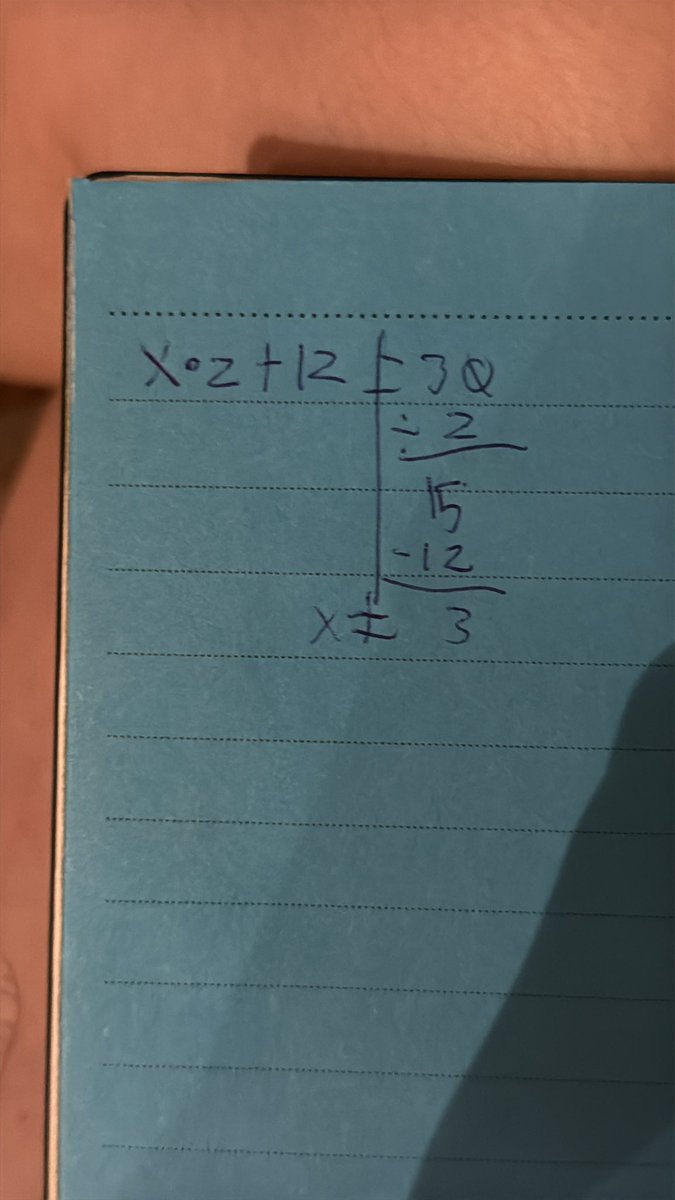 x•2+12=30
÷2
15
-12
x=3